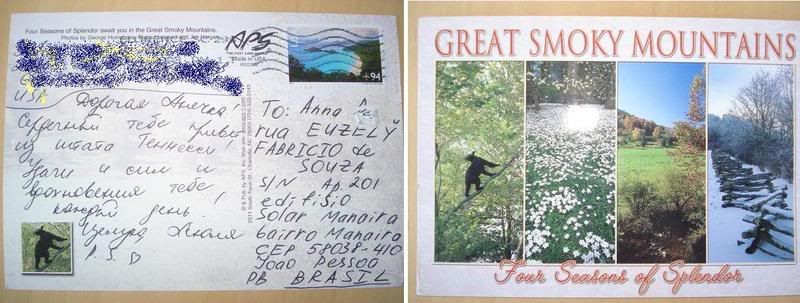 Four Seasons of Splendor await you in the Great Smoky Mountains.
Photos by George Humphries, and Jim Hargan
APS
THE POST CARD PEOPLE
Made in USA
94
USA
Дорогая Анечка!
Сердечный тебе привет
из штата Теннесси!
Удачи и сил и
вдохновения тебе
каждый день!
Целую
P.S. ♡
© & Pub by APS, Inc.
2511 South Tryon St., Charlotte, NC 28203
To: Anna
rua EUZELY
FABRICIO de
SOUZA
S/N Ap. 201
edifisio
Solar Manaira
bairro Manaira
CEP 58038-410
Joao Pessoa
PB BRASIL
GREAT SMOKY MOUNTAINS
Four Seasons of Splendor